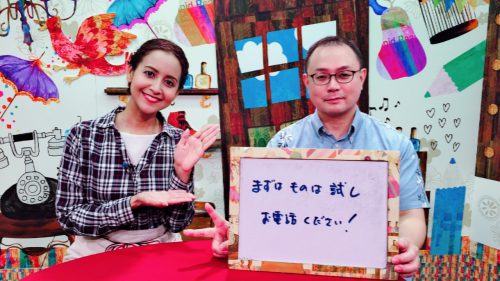 まずは ものは 試し
お電話 ください!